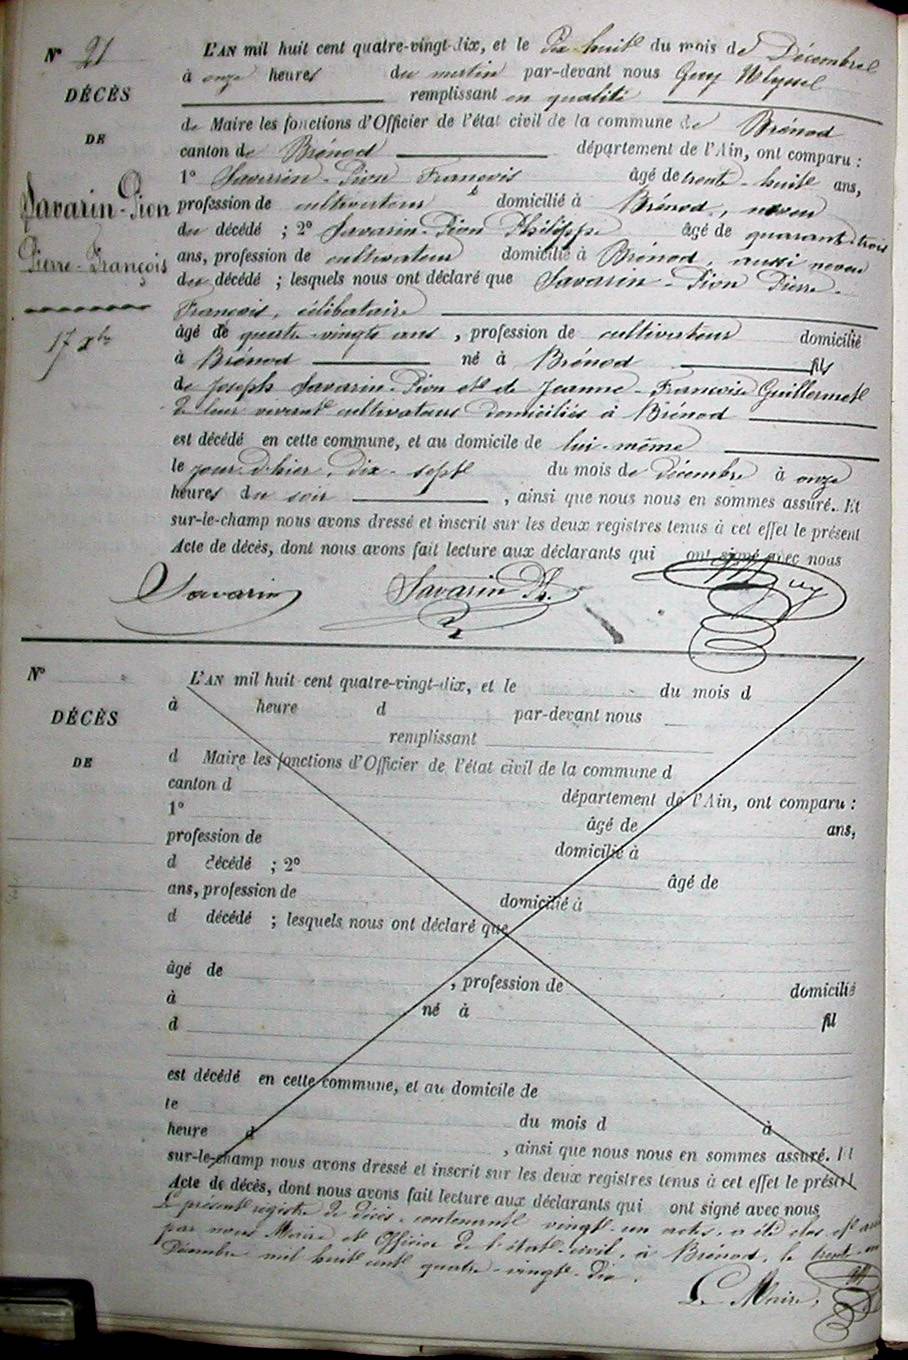 N° 21
DÉCÈS
DE
Savarin-Pion
Pierre-François
17 Xbre
L'AN mil huit cent quatre-vingt-dix, et le dix huit du mois de Décembre
à onze heures du matin par-devant nous Guy Ulysse
remplissant en qualité
de Maire les fonctions d'Officier de l'état civil de la commune de Brénod
canton de Brénod département de l'Ain, ont comparu :
1° Savarin-Pion François âgé de trente-huit ans,
profession de cultivateur domicilié à Brénod, neveu
du décédé ; 2° Savarin-Pion Philippe âgé de quarante trois
ans, profession de cultivateur domicilié à Brénod, aussi neveu
du décédé ; lesquels nous ont déclaré que Savarin-Pion Pierre-
François, célibataire
âgé de quatre-vingts ans, profession de cultivateur domicilié
à Brénod né à Brénod fils
de Joseph Savarin-Pion et de Jeanne-Françoise Guillermet
de leur vivant cultivateurs domiciliés à Brénod
est décédé en cette commune, et au domicile de lui-même
le jour d'hier, dix-sept du mois de décembre à onze
heures du soir, ainsi que nous nous en sommes assuré. Et
sur-le-champ nous avons dressé et inscrit sur les deux registres tenus à cet effet le présent
Acte de décès, dont nous avons fait lecture aux déclarants qui ont signé avec nous
Savarin Savarin Ph. Guy
N°
DÉCÈS
DE
L'AN mil huit cent quatre-vingt-dix, et le du mois d
à heure d par-devant nous
remplissant
d Maire les fonctions d'Officier de l'état civil de la commune d
canton d département de l'Ain, ont comparu :
1° âgé de ans,
profession de domicilié à
d décédé ; 2° âgé de
ans, profession de domicilié à
d décédé ; lesquels nous ont déclaré que
âgé de , profession de domicilié
à né à fil
d
est décédé en cette commune, et au domicile de
le du mois d à
heure d , ainsi que nous nous en sommes assuré. Et
sur-le-champ nous avons dressé et inscrit sur les deux registres tenus à cet effet le présent
Acte de décès, dont nous avons fait lecture aux déclarants qui ont signé avec nous
Le présent registre de décès, contenant vingt-un actes, a été clos et
par nous Maire et Officier de l'état-civil, à Brénod, le trente-un
Décembre mil huit cent quatre-vingt-dix.
Le Maire,